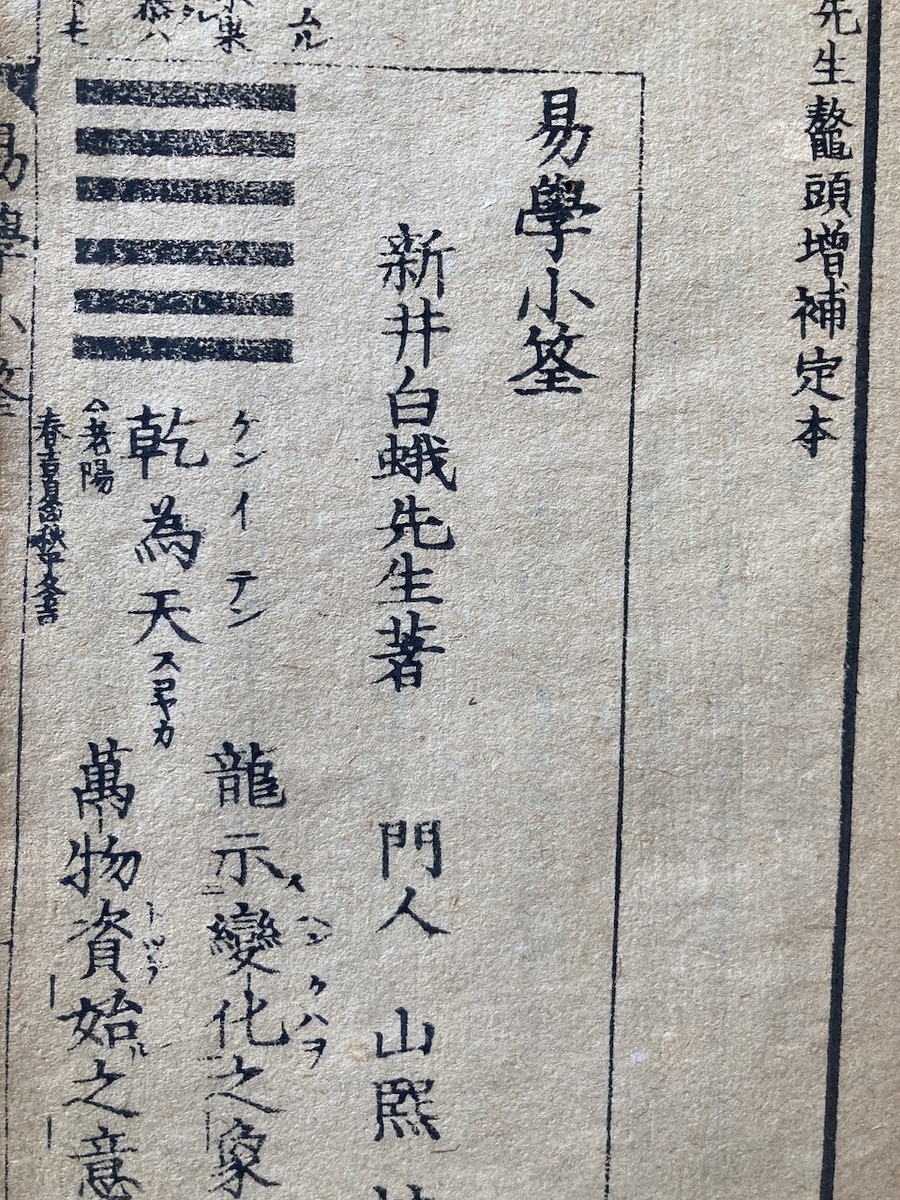 先生鼇頭增補定本
易學小筌
新井白蛾先生著 門人 山熈
ケンイテン
乾為天
老陽
龍示變化之象
ヘンケハヲ
萬物資始之意
易學小筌